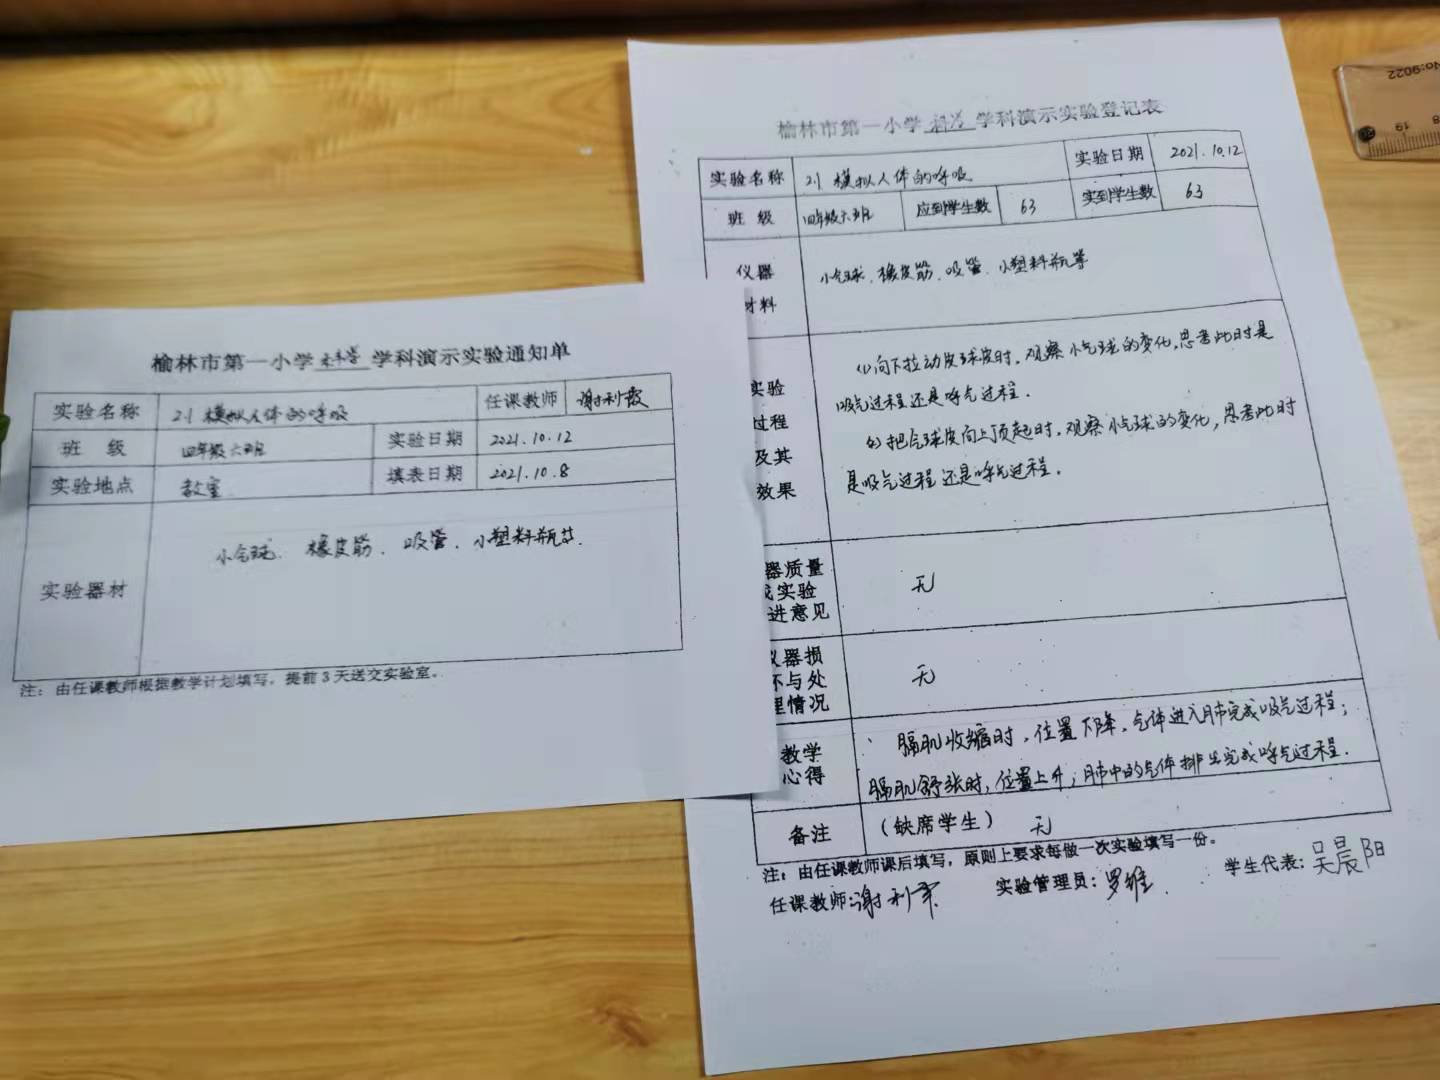 榆林市第一小学科学学科演示实验通知单
实验名称 2.1 模拟人体的呼吸 任课教师 谢利霞
班 级 四年级六班 实验日期 2021.10.12
实验地点 教室 填表日期 2021.10.8
实验器材 小气球、橡皮筋、吸管、小塑料瓶等.
注：由任课教师根据教学计划填写，提前3天送交实验室。
榆林市第一小学科学学科演示实验登记表
实验名称 2.1 模拟人体的呼吸 实验日期 2021.10.12
班 级 四年级六班 应到学生数 63 实到学生数 63
仪器
材料
小气球、橡皮筋、吸管、小塑料瓶等
实验
过程
及其
效果
(1)向下拉动皮球皮时，观察小气球的变化，思考此时是
吸气过程还是呼气过程.
(2)把气球皮向上顶起时，观察小气球的变化，思考此时
是吸气过程还是呼气过程.
器质量
实验
进意见
无
仪器损
坏与处
理情况
无
教学
心得
膈肌收缩时，位置下降，气体进入肺完成吸气过程；
膈肌舒张时，位置上升；肺中的气体排出完成呼气过程.
备注 （缺席学生） 无
注：由任课教师课后填写，原则上要求每做一次实验填写一份。
任课教师：谢利 实验管理员：罗维 学生代表：吴晨阳
No:9022
19 18